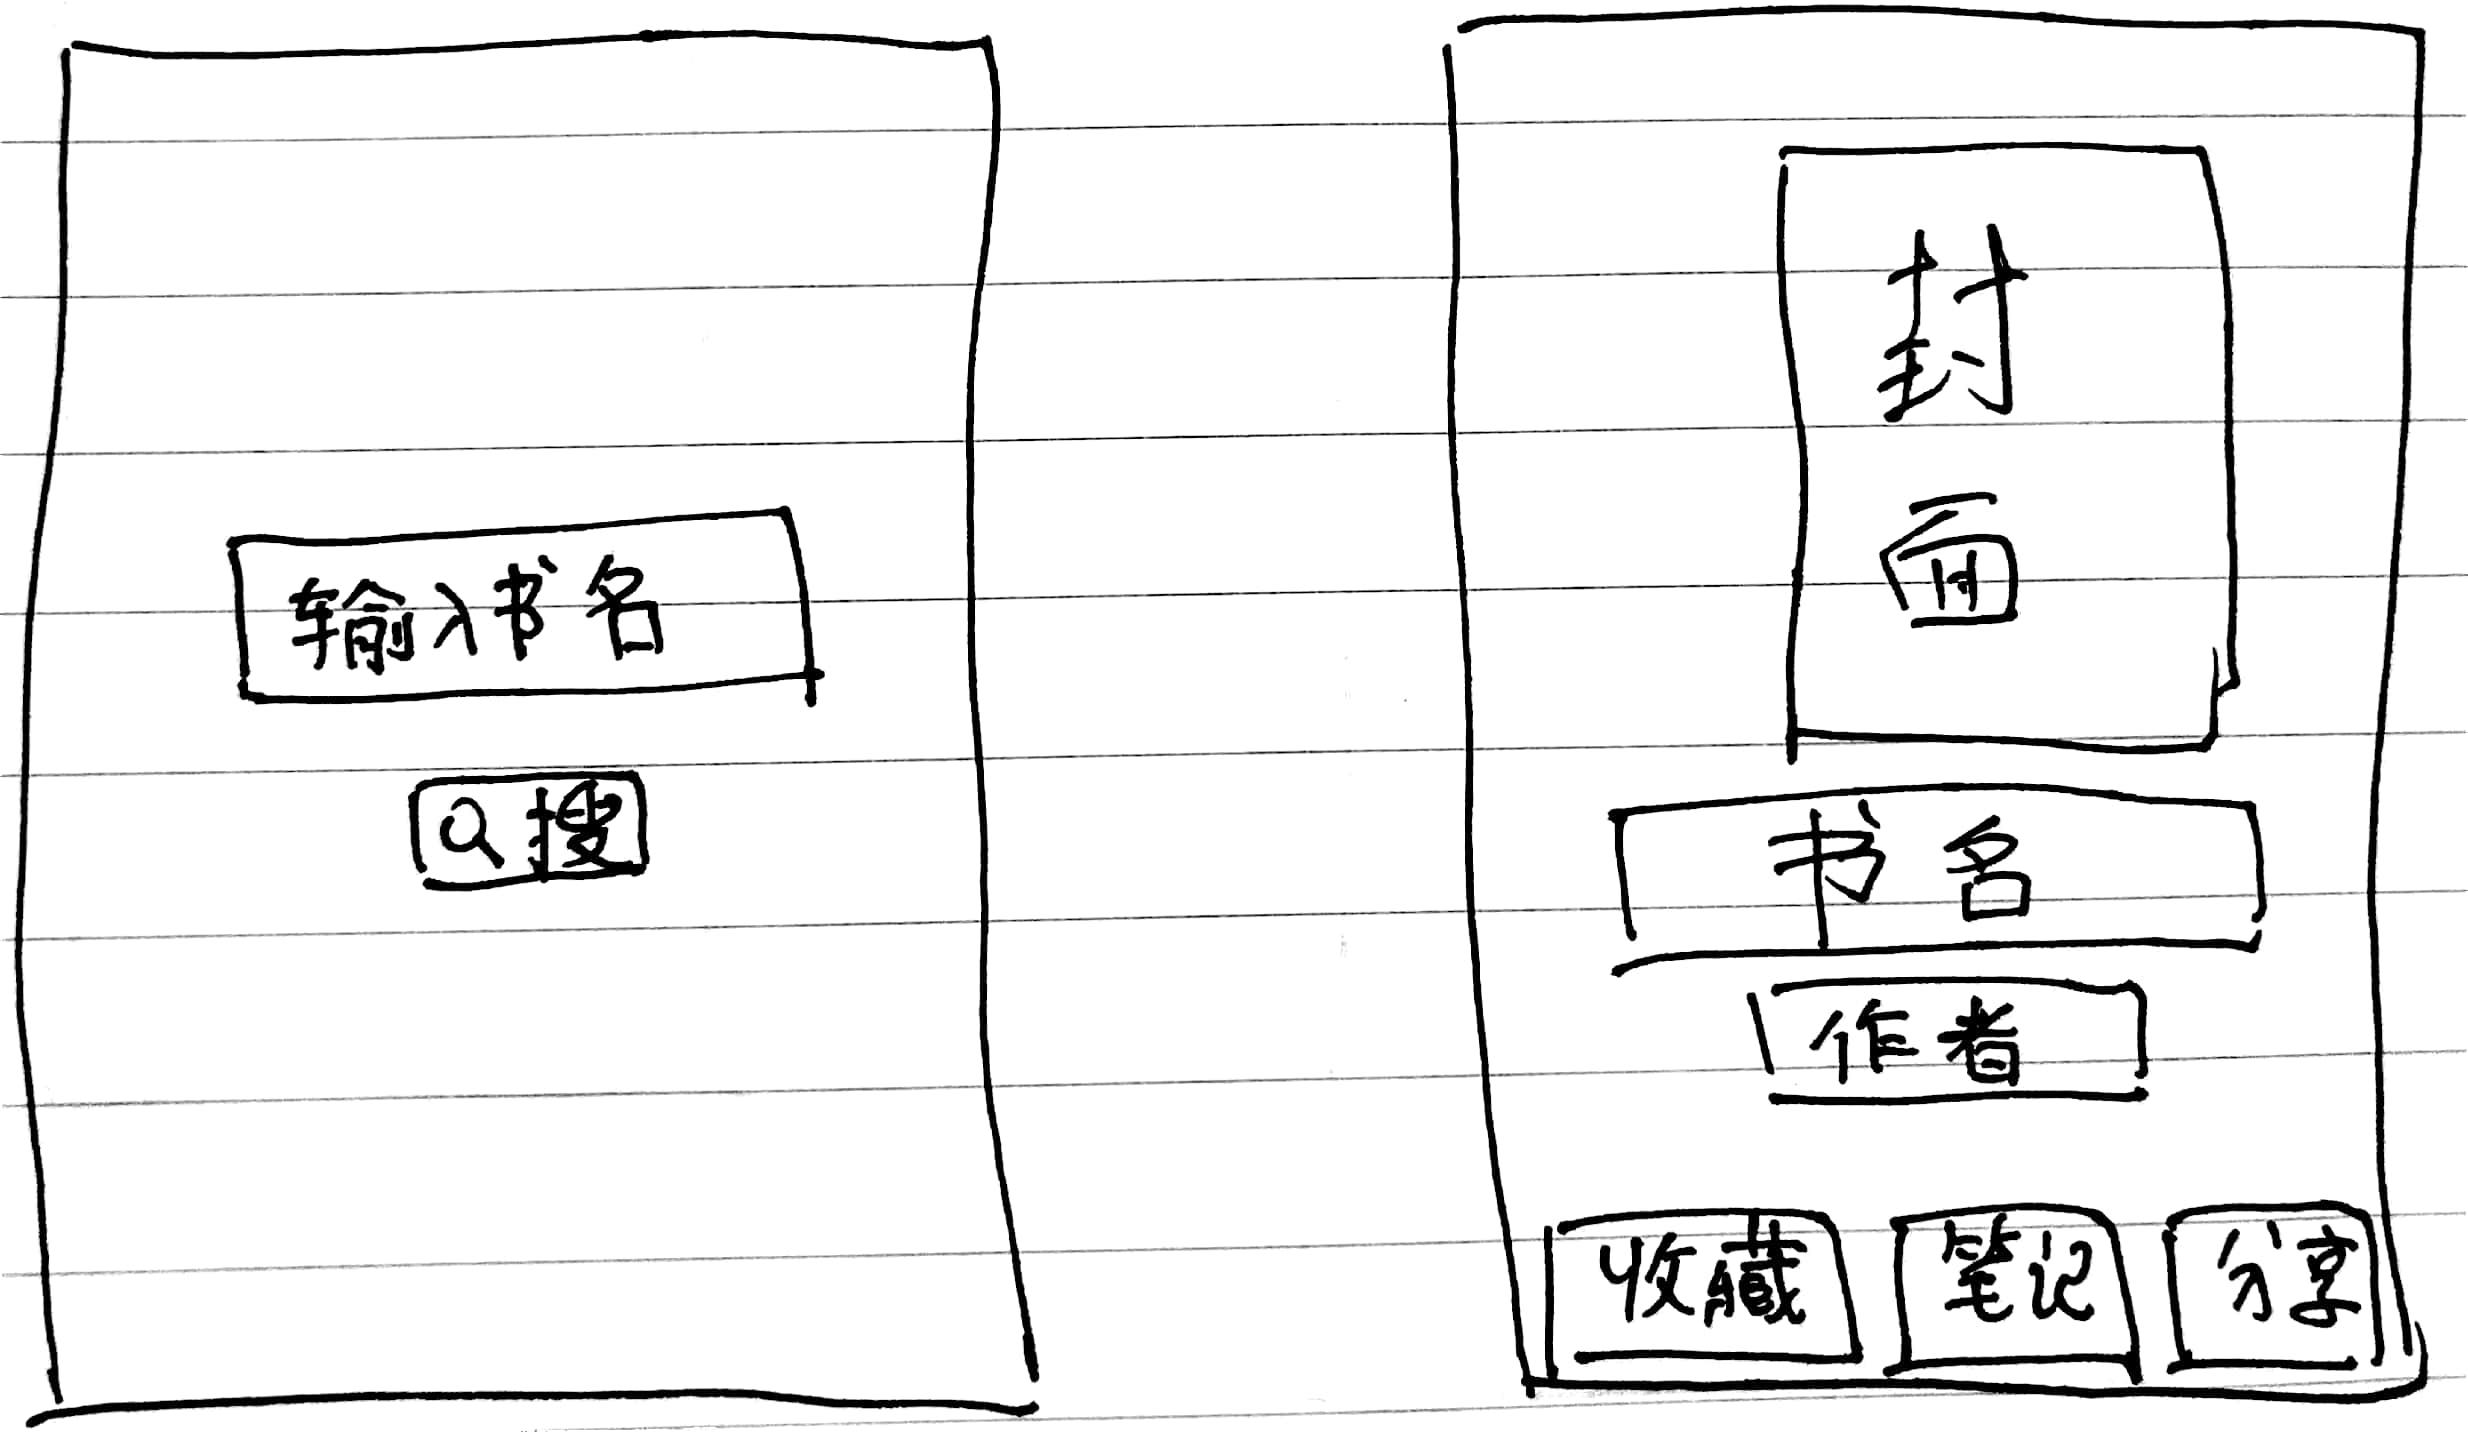 输入书名
搜
封
面
书名
作者
收藏 笔记 分享